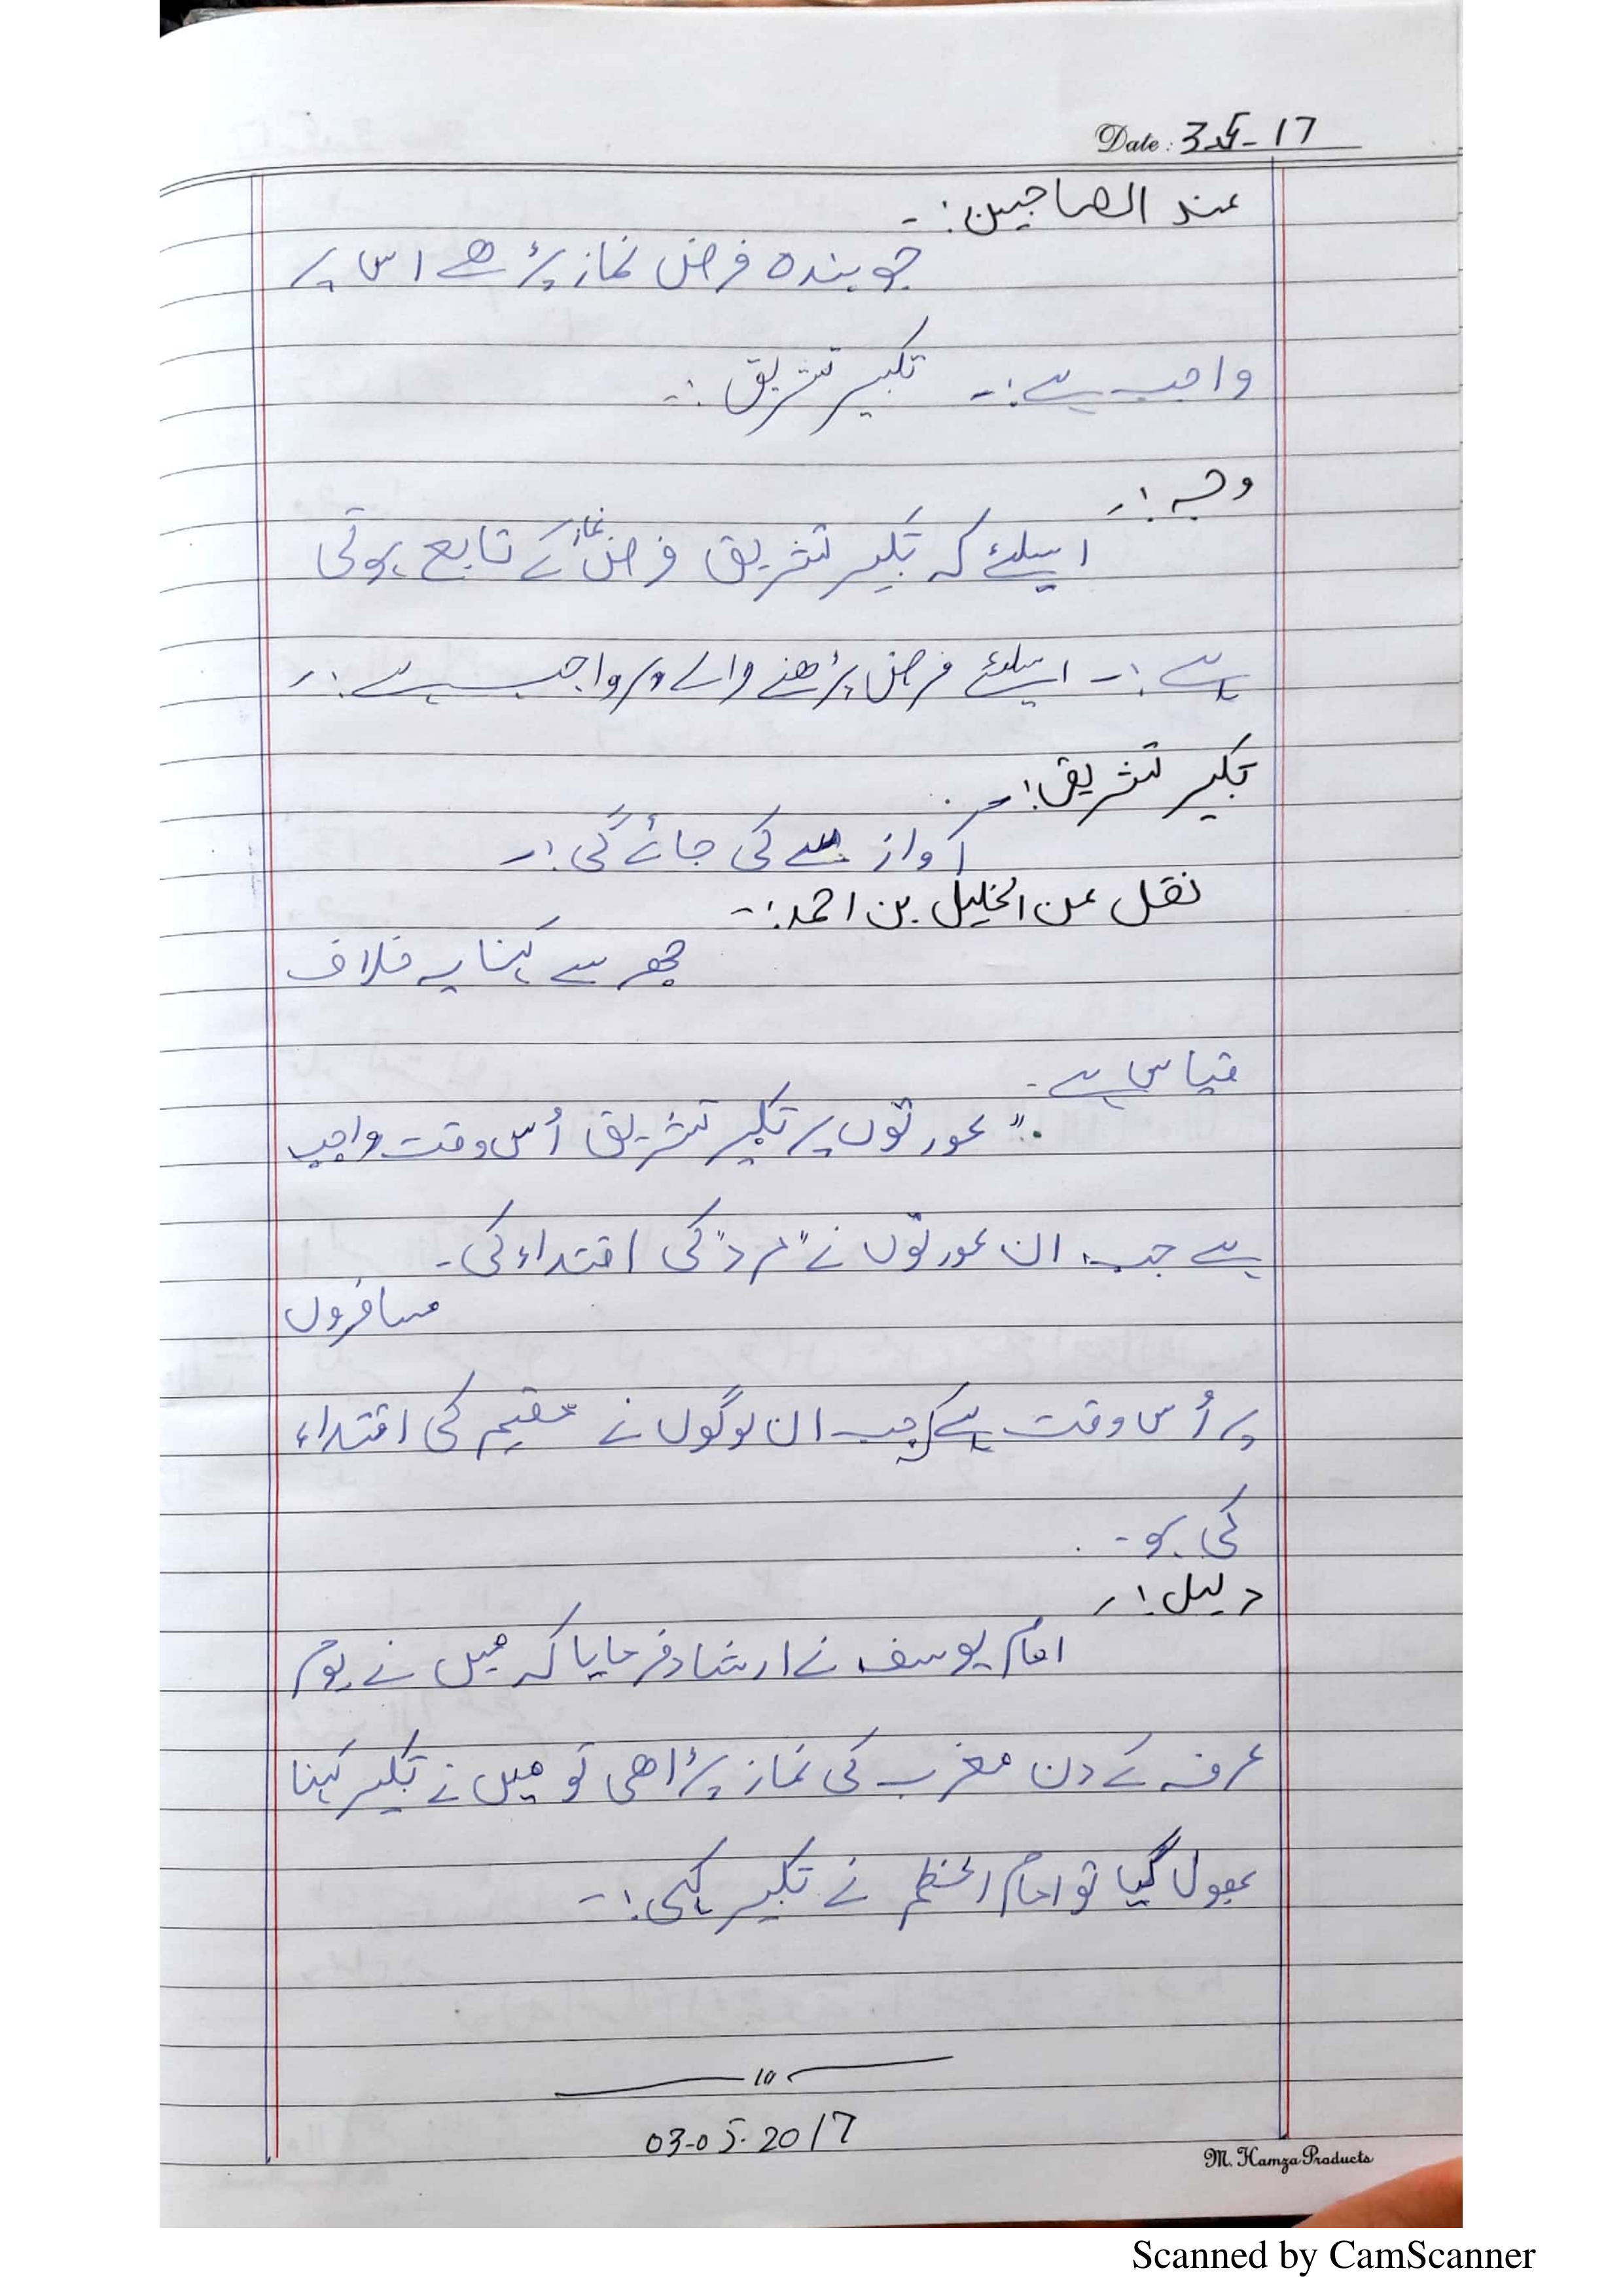 Date: 3-5-17
عند الصاحبین:-
جو بندہ فرض نماز پڑھے اس پر
واجب ہے:- تکبیر تشریق:-
وجہ:-
اسلئے کہ تکبیر تشریق فرض نماز کے تابع ہوتی
ہے:- اسلئے فرض پڑھنے والے پر واجب ہے:-
تکبیر تشریق:-
آواز سے کی جائے گی:-
نقل عن الخلیل بن احمد:-
جھر سے کہنا یہ خلاف
قیاس ہے-
"عورتوں پر تکبیر تشریق اُس وقت واجب
ہے جب ان عورتوں نے "مرد" کی اقتداء کی-
مسافروں
پر اُس وقت ہے کہ جب ان لوگوں نے مقیم کی اقتداء
کی ہو-
دلیل:-
امام یوسف نے ارشاد فرمایا کہ میں نے یوم
عرفہ کے دن مغرب کی نماز پڑاھی تو میں نے تکبیر کہنا
بھول گیا تو امام اعظم نے تکبیر کہی:-
03-05-2017
M. Hamza Products
Scanned by CamScanner